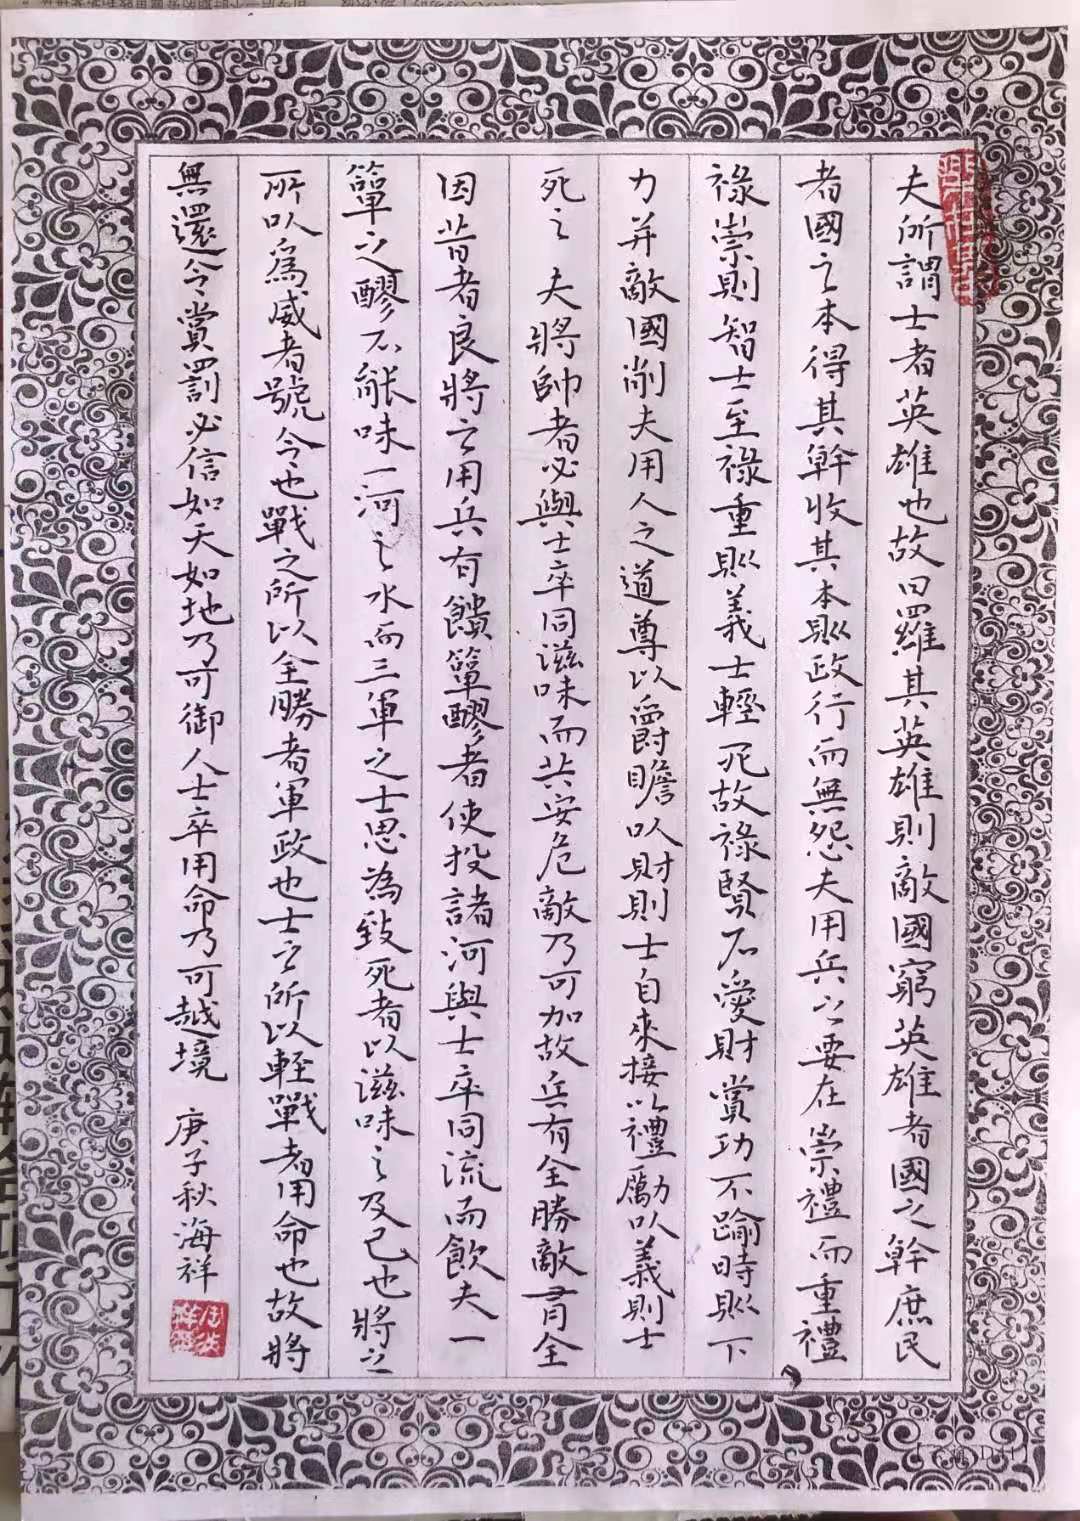 夫所謂士者英雄也故曰羅其英雄則敵國窮英雄者國之幹庶民
者國之本得其幹收其本則政行而無怨夫用兵之要在崇禮而重禮
祿崇則智士至祿重則義士輕死故祿賢不愛財賞功不踰時則下
力并敵國削夫用人之道尊以爵贍以財則士自來接以禮勵以義則士
死之夫將帥者必與士卒同滋味而共安危敵乃可加故兵有全勝敵有全
因昔者良將之用兵有饋簞醪者使投諸河與士卒同流而飲夫一
簞之醪不能味一河之水而三軍之士思為致死者以滋味之及己也將之
所以為威者號令也戰之所以全勝者軍政也士之所以輕戰者用命也故將
無還令賞罰必信如天如地乃可御人士卒用命乃可越境 庚子秋海祥